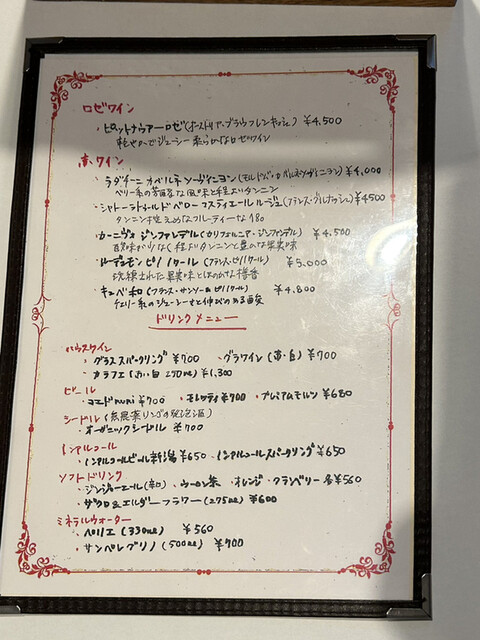 ロゼワイン
・ピットナウアーロゼ(オーストリア・ブラウフレンキッシュ) ¥4,500
軽やかでジューシー 柔らかなロゼワイン
赤ワイン
・ラダチーニ カベルネソーヴィニヨン(モルドバ・カベルネソーヴィニヨン) ¥4,000
ベリー系の芳醇な風味と程よいタンニン
・シャトーラトゥールド ベロー フスティエールルージュ(フランス・グルナッシュ) ¥4500
タンニン控えめなフルーティーな
・カーニヴォ ジンファンデル(カリフォルニア・ジンファンデル) ¥4,500
酸味が少なく程よいタンニンと豊かな果実味
・ドーデ ピノノワール(フランス・ピノノワール) ¥5,000
洗練された果実味とほのかな樽香
・キュベ (フランス・サンソー&ピノノワール) ¥4,800
チェリー系のジューシーさと伸びのある
ドリンクメニュー
ハウスワイン
・グラススパークリング ¥700 ・グラスワイン(赤・白) ¥700
・カラフェ(赤・白 270ml) ¥1,300
ビール
・コエドruri ¥700 ・モレッティ ¥700 ・プレミアムモルツ ¥680
シードル(無農薬リンゴの発泡酒)
・オーガニックシードル ¥700
ノンアルコール
・ノンアルコールビール新潟 ¥650 ・ノンアルコールスパークリング ¥650
ソフトドリンク
・ジンジャーエール(辛口) ・ウーロン茶 ・オレンジ ・クランベリー 各¥560
・ザクロ&エルダーフラワー(275ml) ¥600
ミネラルウォーター
・ペリエ(330ml) ¥560
・サンペレグリノ(500ml) ¥700